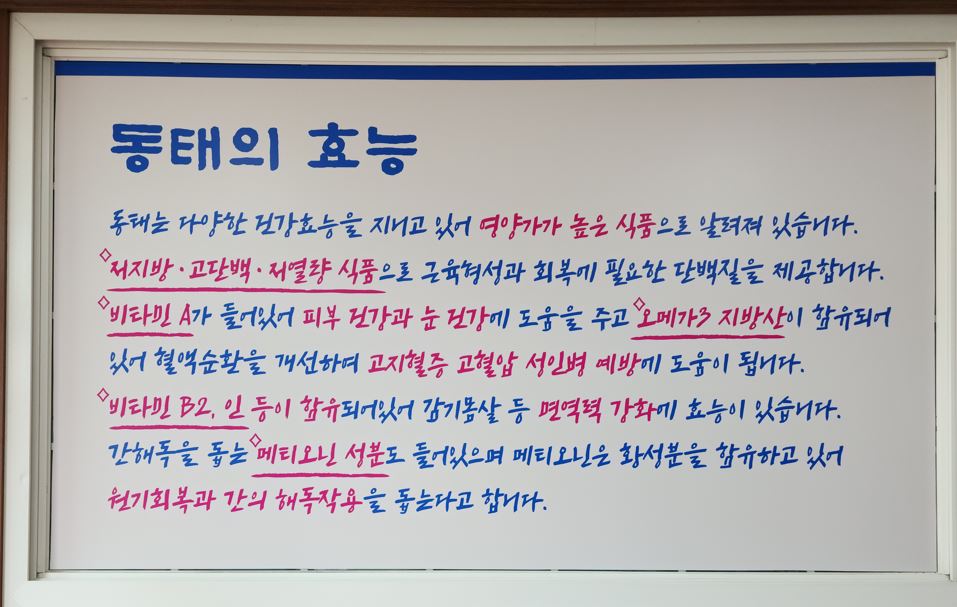 동태의 효능
동태는 다양한 건강효능을 지니고 있어 영양가가 높은 식품으로 알려져 있습니다.
저지방·고단백·저열량 식품으로 근육형성과 회복에 필요한 단백질을 제공합니다.
비타민 A가 들어있어 피부 건강과 눈 건강에 도움을 주고 오메가3 지방산이 함유되어
있어 혈액순환을 개선하여 고지혈증 고혈압 성인병 예방에 도움이 됩니다.
비타민 B2, 인 등이 함유되어있어 감기몸살 등 면역력 강화에 효능이 있습니다.
간해독을 돕는 메티오닌 성분도 들어있으며 메티오닌은 황성분을 함유하고 있어
원기회복과 간의 해독작용을 돕는다고 합니다.